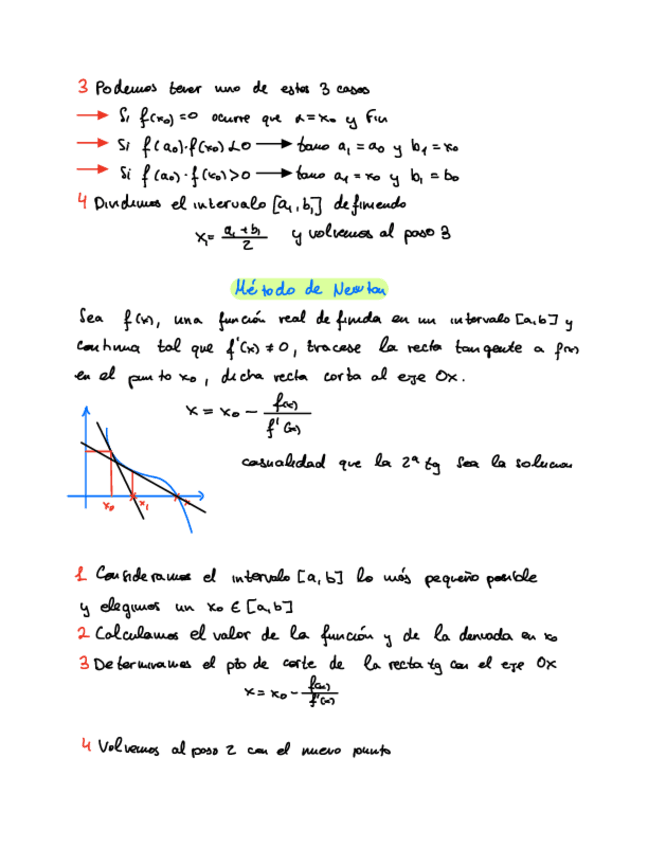 3 Podemos tener uno de estos 3 casos
→ Si f(x₀)=0 ocurre que α=x₀ y Fin
→ Si f(a₀)·f(x₀)<0 → tomo a₁=a₀ y b₁=x₀
→ Si f(a₀)·f(x₀)>0 → tomo a₁=x₀ y b₁=b₀
4 Dividimos el intervalo [a₁,b₁] definiendo
x₁= (a₁+b₁)/2 y volvemos al paso 3
Método de Newton
Sea f(x), una función real definida en un intervalo [a,b] y
continua tal que f'(x) ≠ 0, tracese la recta tangente a f(x)
en el punto x₀, dicha recta corta al eje Ox.
x = x₀ - f(x)/f'(x)
casualidad que la 2ª tg sea la solucion
x₀ x₁ x
1 Consideramos el intervalo [a,b] lo más pequeño posible
y elegimos un x₀ ∈ [a,b]
2 Calculamos el valor de la función y de la derivada en x₀
3 Determinamos el pto de corte de la recta tg con el eje Ox
x = x₀ - f(x)/f'(x)
4 Volvemos al paso 2 con el nuevo punto